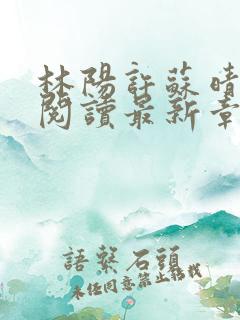 林陽許蘇晴
閱讀最新章
語繫石頭
未經同意禁止轉載